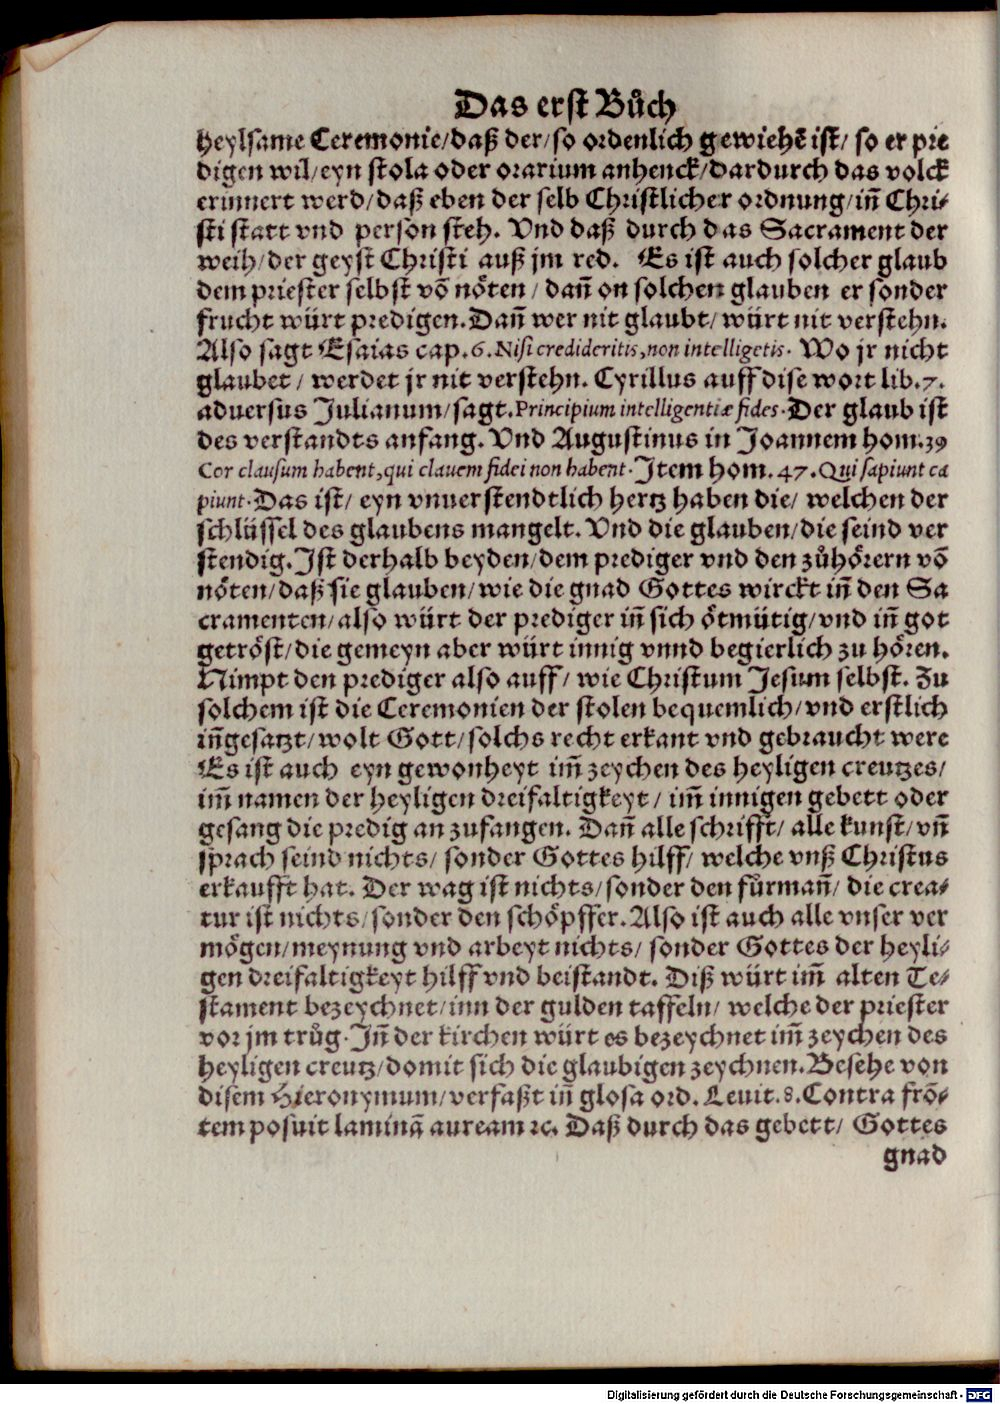 Das erst Bůch
heylsame Ceremonie/daß der/so ordenlich gewiehẽ ist/ so er pre
digen wil/eyn stola oder orarium anhenck/dardurch das volck
erinnert werd/daß eben der selb Christlicher ordnung/iñ Chri-
sti statt vnd person steh. Vnd daß durch das Sacrament der
weih/der geyst Christi auß jm red. Es ist auch solcher glaub
dem priester selbst võ nöten/ dañ on solchen glauben er sonder
frucht würt predigen. Dañ wer nit glaubt/ würt nit verstehn.
Also sagt Esaias cap.6. Nisi credideritis, non intelligetis. Wo jr nicht
glaubet/ werdet jr nit verstehn. Cyrillus auff dise wort lib.7.
aduersus Julianum/sagt. Principium intelligentiæ fides. Der glaub ist
des verstandts anfang. Vnd Augustinus in Joannem hom.39
Cor clausum habent, qui clauem fidei non habent. Item hom.47. Qui sapiunt ca
piunt. Das ist/ eyn vnuerstendtlich hertz haben die/ welchen der
schlüssel des glaubens mangelt. Vnd die glauben/die seind ver
stendig. Ist derhalb beyden/dem prediger vnd den zůhörern võ
nöten/daß sie glauben/wie die gnad Gottes wirckt iñ den Sa
cramenten/also würt der prediger iñ sich ötmütig/vnd iñ got
getröst/die gemeyn aber würt innig vnnd begierlich zu hören.
Nimpt den prediger also auff/ wie Christum Jesum selbst. Zu
solchem ist die Ceremonien der stolen bequemlich/vnd erstlich
iñgesatzt/wolt Gott/solchs recht erkant vnd gebraucht were
Es ist auch eyn gewonheyt im̃ zeychen des heyligen creutzes/
im̃ namen der heyligen dreifaltigkeyt/ im̃ innigen gebett oder
gesang die predig an zufangen. Dañ alle schrifft/ alle kunst/vñ
sprach seind nichts/ sonder Gottes hilff/ welche vnß Christus
erkaufft hat. Der wag ist nichts/sonder den fůrmañ/ die crea-
tur ist nichts/sonder den schöpffer. Also ist auch alle vnser ver
mögen/meynung vnd arbeyt nichts/ sonder Gottes der heyli-
gen dreifaltigkeyt hilff vnd beistandt. Diß würt im̃ alten Te-
stament bezeychnet/inn der gulden taffeln/ welche der priester
vor jm trůg. Iñ der kirchen würt es bezeychnet im̃ zeychen des
heyligen creutz/domit sich die glaubigen zeychnen. Besehe von
disem Hieronymum/verfaßt iñ glosa ord. Leuit.8. Contra frõ-
tem posuit laminã auream ꝛc. Daß durch das gebett/ Gottes
gnad
Digitalisierung gefördert durch die Deutsche Forschungsgemeinschaft - DFG